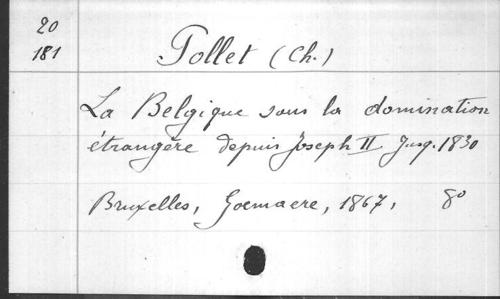 20
181
Pollet (Ch.)
La Belgique sous la domination
étrangère depuis Joseph II Jusq. 1830
Bruxelles, Goemaere, 1867, 8º